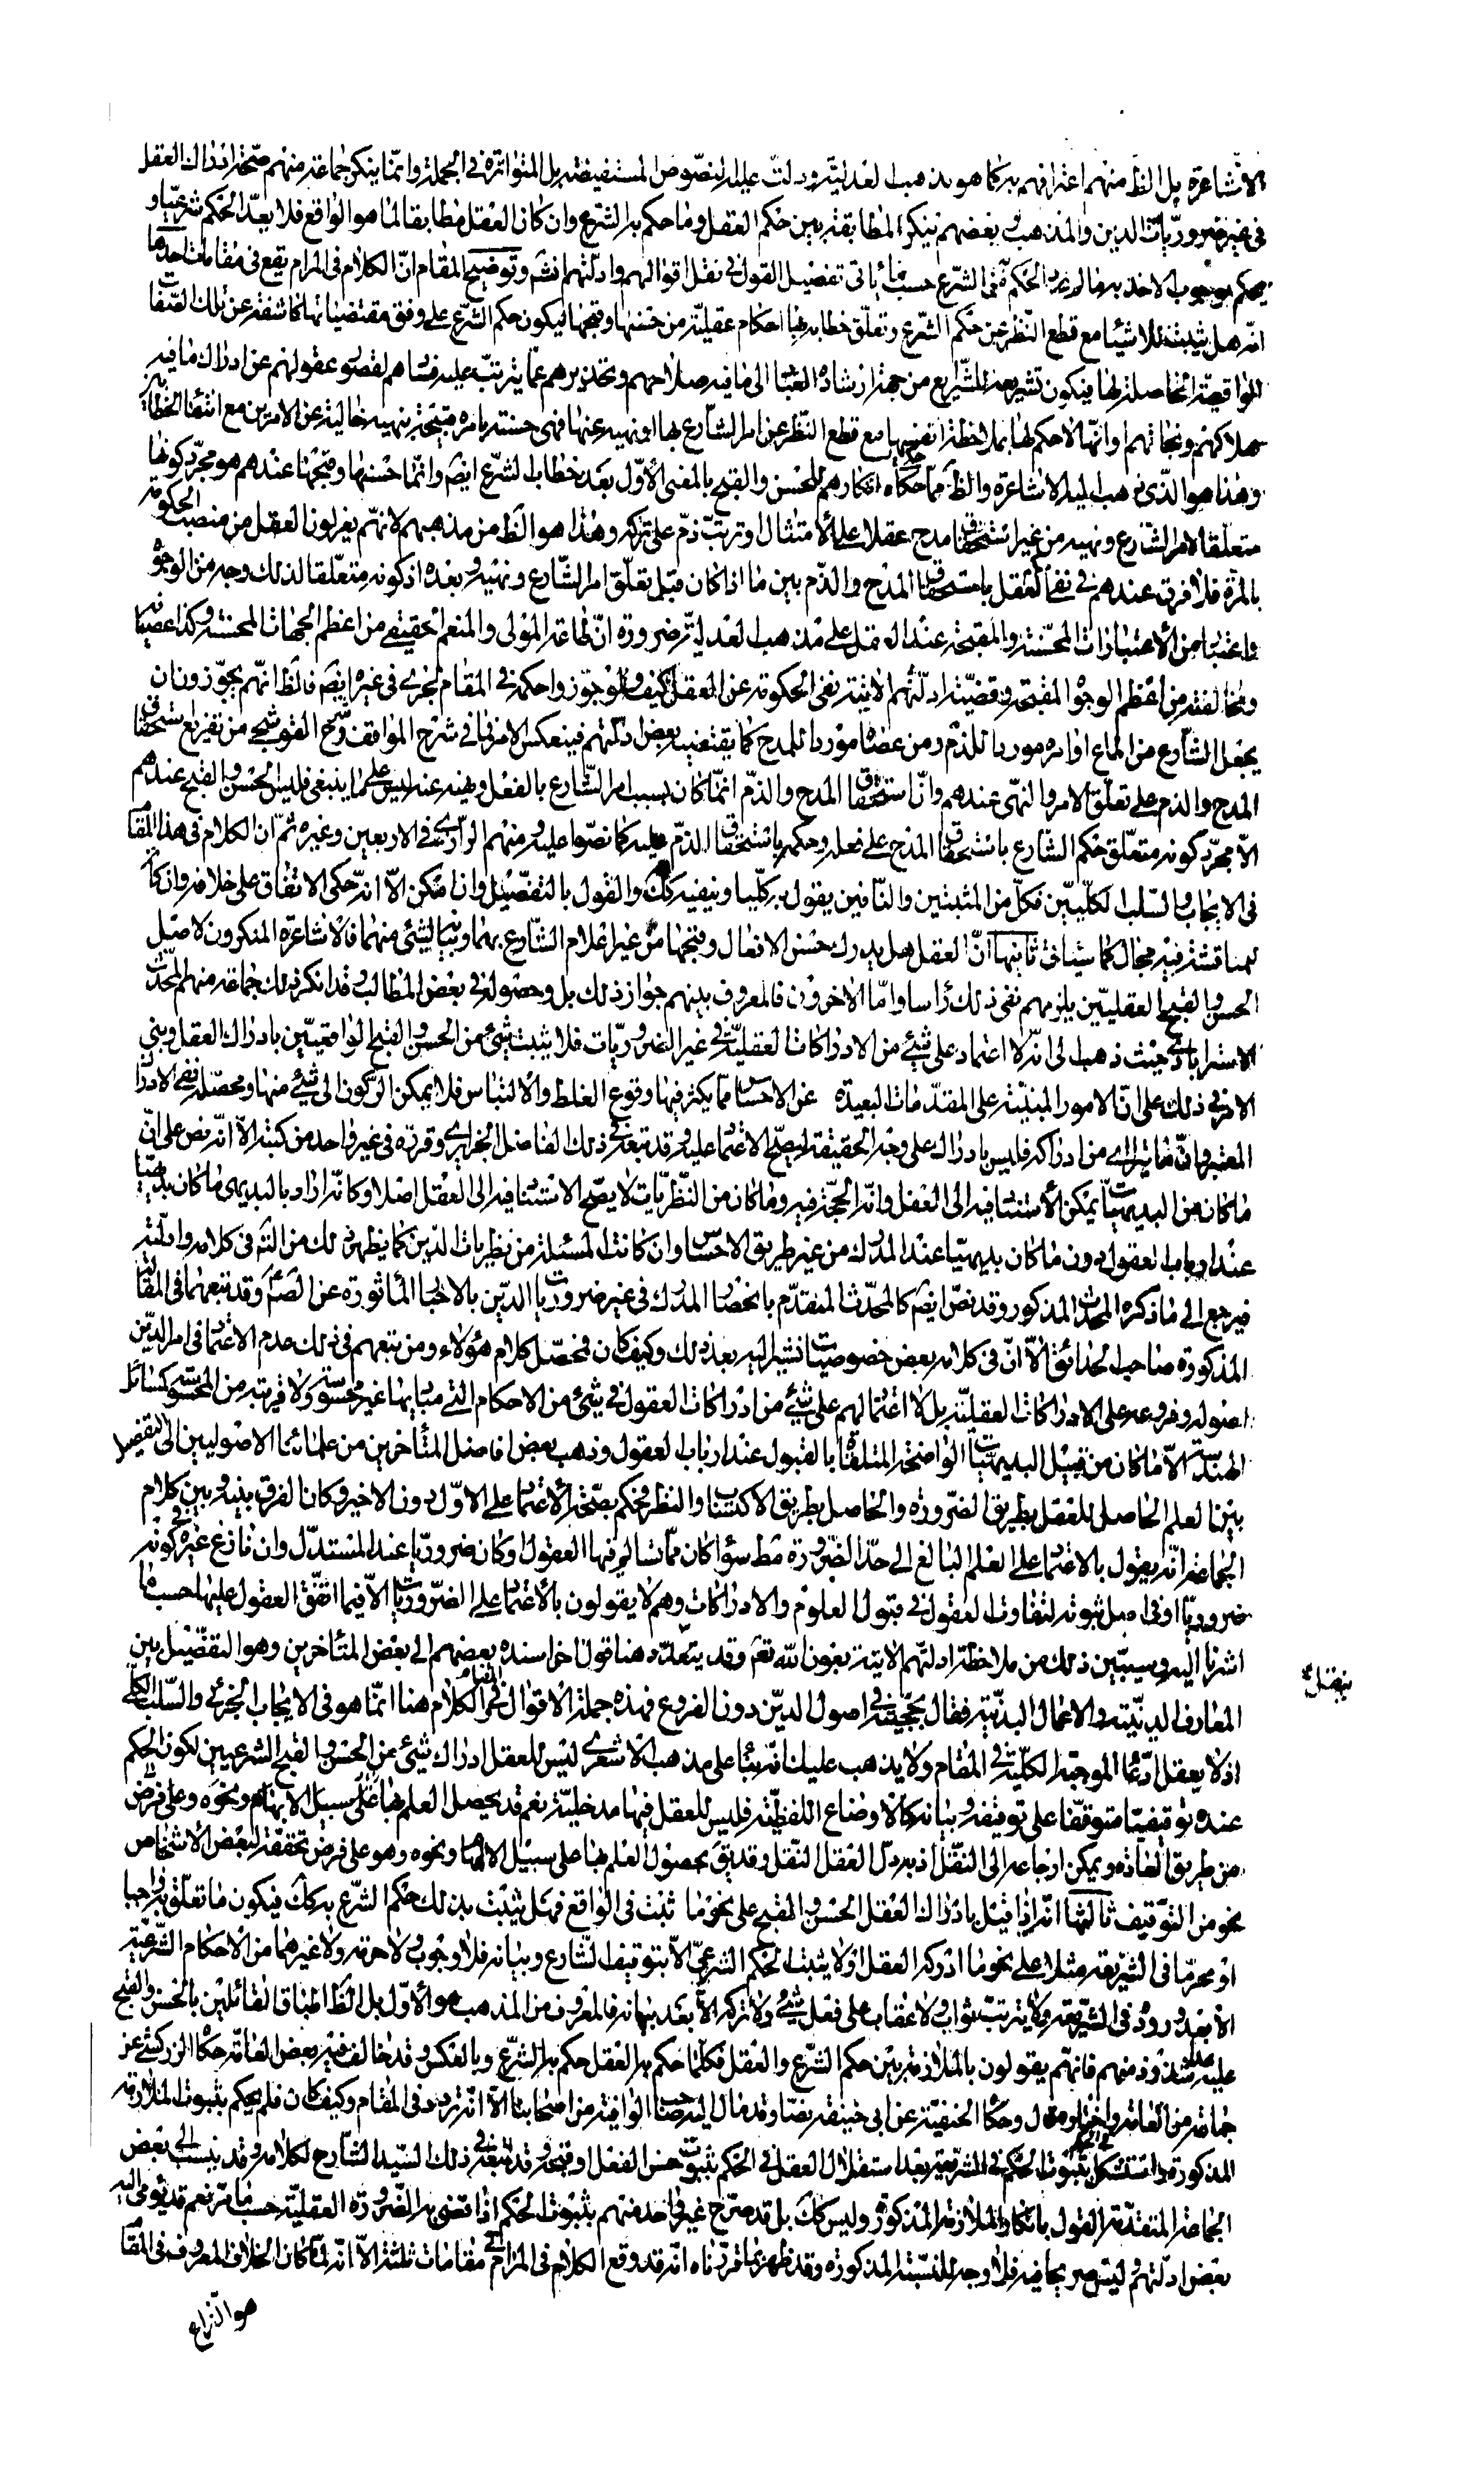 الاشاعرة بل الظ منهم اعترافهم به كما هو مذهب العدلية ودلت عليه النصوص المستفيضة بل المتواترة في الجملة وانما ينكر جماعة منهم صحة ادراك العقل
في غير ضروريات الدين والمذهب وبعضهم ينكر المطابقة بين حكم العقل وما حكم به الشرع وان كان العقل مطابقا لما هو الواقع فلا يعد الحكم شرعيا و
يحكم بوجوب الاخذ به ما لم يرد الحكم به في الشرع حسب ما يأتي تفصيل القول في نقل اقوالهم وادلتهم انش وتوضيح المقام ان الكلام في المرام يقع في مقامات احدها
انه هل يثبت للاشياء مع قطع النظر عن حكم الشرع وتعلق خطابه بها احكام عقلية من حسنها وقبحها فيكون حكم الشرع على وفق مقتضياتها كاشفة عن تلك الصفات
الواقعية الحاصلة لها فيكون تشريعه للشرايع من جهة ارشاد العباد الى ما فيه صلاحهم وتحذيرهم عما يترتب عليه فسادهم لقصور عقولهم عن ادراك ما فيه
هلاكهم ونجاتهم وانها لا حكم لها بملاحظة انفسها مع قطع النظر عن امر الشارع بها او نهيه عنها فهي حسنة بامره قبيحة بنهيه خالية عن الامرين مع انتفاء الخطاب
وهذا هو الذي ذهب اليه الاشاعرة والظ مما حكاه انكارهم للحسن والقبح بالمعنى الاول بعد خطاب الشرع ايضم وانما حسنها وقبحها عندهم هو مجرد كونها
متعلقا لامر الشارع ونهيه من غير استحقاق مدح عقلا على الامتثال او ترتب ذم على تركه وهذا هو الظ من مذهبهم لانهم يعزلون العقل من منصب الحكومة
بالمرة فلا فرق عندهم في نفي العقل باستحقاق المدح والذم بين ما اذا كان قبل تعلق امر الشارع ونهيه وبعده اذ كونه متعلقا لذلك وجه من الوجوه
واعتبار من الاعتبارات المحسنة والمقبحة عند العقل على مذهب العدلية ضرورة ان طاعة المولى والمنعم الحقيقي من اعظم الجهات المحسنة وكذا عصيانه
ومخالفته من اعظم الوجوه المقبحة وقضية ادلتهم الاتية نفي الحكومة عن العقل كيف ولو جوزوا حكمه في المقام لجرى في غيره ايضم فالظ انهم يجوزون ان
يجعل الشارع من اطاع اوامره موردا للذم ومن عصاه موردا للمدح كما يقتضيه بعض ادلتهم فينعكس الامر فما في شرح المواقف وشرح القوشجي من تفريع استحقاق
المدح والذم على تعلق الامر والنهي عندهم وان استحقاق المدح والذم انما كان بسبب امر الشارع بالفعل ونهيه عنه ليس على ما ينبغي فليس الحسن والقبح عندهم
الا مجرد كونه متعلق حكم الشارع باستحقاق المدح على فعله وحكمه باستحقاق الذم عليه كما نصوا عليه ومنهم الرازي في الاربعين وغيره ثم ان الكلام في هذا المقام
في الايجاب والسلب الكليين فكل من المثبتين والنافين يقول به كليا وينفيه كك والقول بالتفصيل وان امكن الا انه حكى الاتفاق على خلافه وان كان
للمناقشة فيه مجال كما سيأتي ثانيها ان العقل هل يدرك حسن الافعال وقبحها من غير اعلام الشارع بهما وبيانه لشيء منهما فالاشاعرة المنكرون لاصل
الحسن والقبح العقليين يلزمهم نفي ذلك رأسا واما الاخرون فالمعروف بينهم جواز ذلك بل وحصوله في بعض المطالب وقد انكر ذلك جماعة منهم المحدث
الاسترابادي حيث ذهب الى انه لا اعتماد على شيء من الادراكات العقلية في غير الضروريات فلا يثبت شيء من الحسن والقبح الواقعيين بادراك العقل وبنى
الامر في ذلك على ان الامور المبنية على المقدمات البعيدة عن الاحساس مما يكثر فيها وقوع الغلط والالتباس فلا يمكن الركون الى شيء منها ومحصله نفي الادراك
المعتبر وان ما يتراءى من ادراكه فليس بادراك على وجه الحقيقة ليصح الاعتماد عليه وقد تبعه في ذلك الفاضل الجزايري وقرره في غير واحد من كتبه الا انه نص على ان
ما كان من البديهيات يمكن الاستناد فيه الى العقل وانه الحجة فيه وما كان من النظريات لا يصح الاستناد فيه الى العقل اصلا وكانه اراد بالبديهي ما كان بديهيا
عند ارباب العقول دون ما كان بديهيا عند المدرك من غير طريق الاحساس وان كانت المسئلة من نظريات الدين كما يظهر ذلك من التم في كلامه وادلته
فيرجع الى ما ذكره المحدث المذكور وقد نص ايضم كالمحدث المتقدم بانحصار المدرك في غير ضروريات الدين بالاخبار المأثورة عن الصم وقد تبعهما في المقالة
المذكورة صاحب الحدائق الا ان في كلامه بعض خصوصيات نشير اليه بعد ذلك وكيف كان فمحصل كلام هؤلاء ومن تبعهم في ذلك عدم الاعتماد في امر الدين
اصوله وفروعه على الادراكات العقلية بل لا اعتماد لهم على شيء من ادراكات العقول في شيء من الاحكام التي مباديها غير محسوسة ولا قريبة من المحسوس كمسائل
الهندسة الا ما كان من قبيل البديهيات الواضحة المتلقاة بالقبول عند ارباب العقول وذهب بعض افاضل المتأخرين من علمائنا الاصوليين الى التفصيل
بين العلم الحاصل للعقل بطريق الضرورة والحاصل بطريق الاكتساب والنظر فحكم بصحة الاعتماد على الاول دون الاخير وكان الفرق بينه وبين كلام
الجماعة انه يقول بالاعتماد على العلم البالغ الى حد الضرورة مط سواء كان مما تسالم فيها العقول وكان ضروريا عند المستدل وان نازع غيره في كونه
ضروريا او في اصل ثبوته لتفاوت العقول في قبول العلوم والادراكات وهم لا يقولون بالاعتماد على الضروريات الا فيما اتفق العقول عليها حسب ما
اشرنا اليه وسيتبين ذلك من ملاحظة ادلتهم الاتية بعون الله تعم وقد يتعلل هنا قول اخر اسنده بعضهم الى بعض المتاخرين وهو التفصيل بين
المعارف الدينية والاعمال البدنية فقال بحجيته في اصول الدين دون الفروع فهذه جملة الاقوال في المقام ثم الكلام هنا انما هو في الايجاب الجزئي والسلب الكلي
اذ لا يعقل ادعاء الموجبة الكلية في المقام ولا يذهب عليك انه بناء على مذهب الاشعري ليس للعقل ادراك شيء من الحسن والقبح الشرعيين لكون الحكم
عنده توقيفيا متوقفا على توقيفه وبيانه كالاوضاع اللفظية فليس للعقل فيها مدخلية نعم قد يحصل العلم بها على سبيل الالهام ونحوه وعلى فرض
من طريق العادة ويمكن ارجاعه الى النقل اذ به دل العقل النقل وقد يتفق بحصول العلم بها على سبيل الالهام ونحوه وهو على فرض تحققه لبعض الاشخاص
نحو من التوقيف ثالثها انه اذا قيل بادراك العقل الحسن والقبح على نحو ما ثبت في الواقع فهل يثبت بذلك حكم الشرع به كك فيكون ما تعلق به واجبا
او محرما في الشريعة مثلا على نحو ما ادركه العقل او لا يثبت الحكم الشرعي الا بتوقيف الشارع وبيانه فلا وجوب ولا حرمة ولا غيرهما من الاحكام الشرعية
الا بعد وروده في الشريعة ولا يترتب ثواب ولا عقاب على فعل شيء ولا تركه الا بعد بيانه فالمعروف من المذهب هو الاول بل الظ اطباق القائلين بالحسن والقبح
عليه عدا شذوذ منهم فانهم يقولون بالملازمة بين حكم الشرع والعقل فكلما حكم به العقل حكم به الشرع وبالعكس وقد خالف فيه بعض العامة حكاه الزركشي عن
جماعة من العامة واختاره قال وحكاه الحنفية عن ابي حنيفة نصا وقد مال اليه صاحب الوافية من اصحابنا الا انه تردد في المقام وكيف كان فلم يحكم بثبوت الملازمة
المذكورة واستشكل في الحكم بثبوت الحكم في الشريعة بعد استقلال العقل في الحكم بثبوت حسن الفعل او قبحه وقد تبعه في ذلك السيد الشارح لكلامه وقد ينسب الى بعض
الجماعة المتقدمة القول بانكار الملازمة المذكورة وليس كك بل قد صرح غير واحد منهم بثبوت الحكم اذا قضى به الضرورة العقلية حسب ما مر نعم قد يؤمي اليه
بعض ادلتهم وليس صريحا فيه فلا وجه للنسبة المذكورة وقد ظهر بما قررناه انه قد وقع الكلام في المرام في مقامات ثلثة الا انه لما كان الخلاف المعروف في المقام
هو النزاع